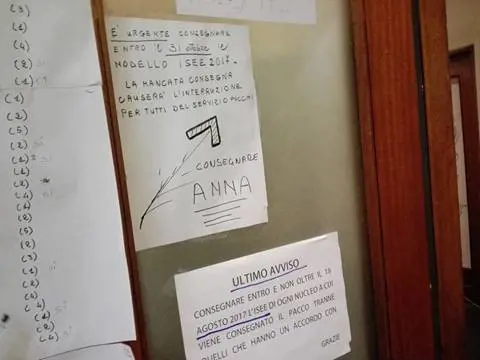 (3)
(1)
(4)
(2)
(1)
(1)
(2)
(5)
(2)
(1)
(1)
(2)
(4)
(1)
(2)
(5)
(2)
(3)
(1)
(2)
(1)
(4)
(2)
(4)
È URGENTE CONSEGNARE
ENTRO il 31 ottobre il
MODELLO ISEE 2017.
LA MANCATA CONSEGNA
CAUSERÀ L'INTERRUZIONE
PER TUTTI DEL SERVIZIO PACCHI
CONSEGNARE
ANNA
ULTIMO AVVISO
CONSEGNARE ENTRO E NON OLTRE IL 18
AGOSTO 2017 L'ISEE DI OGNI NUCLEO A CUI
VIENE CONSEGNATO IL PACCO TRANNE
QUELLI CHE HANNO UN ACCORDO CON
GRAZIE